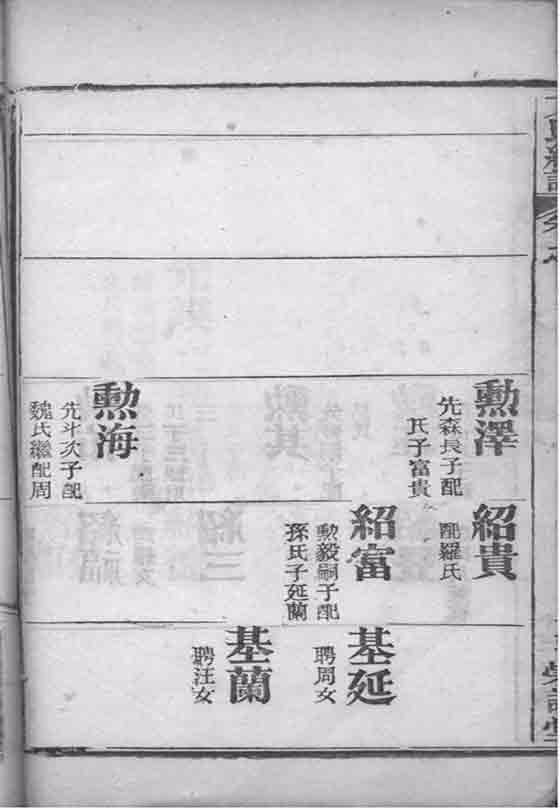 勲澤
先森長子配
氏子富貴
紹貴
配羅氏
紹富
勲毅嗣子配
孫氏子延蘭
基延
聘周女
基蘭
聘汪女
勲海
先斗次子配
魏氏繼配周